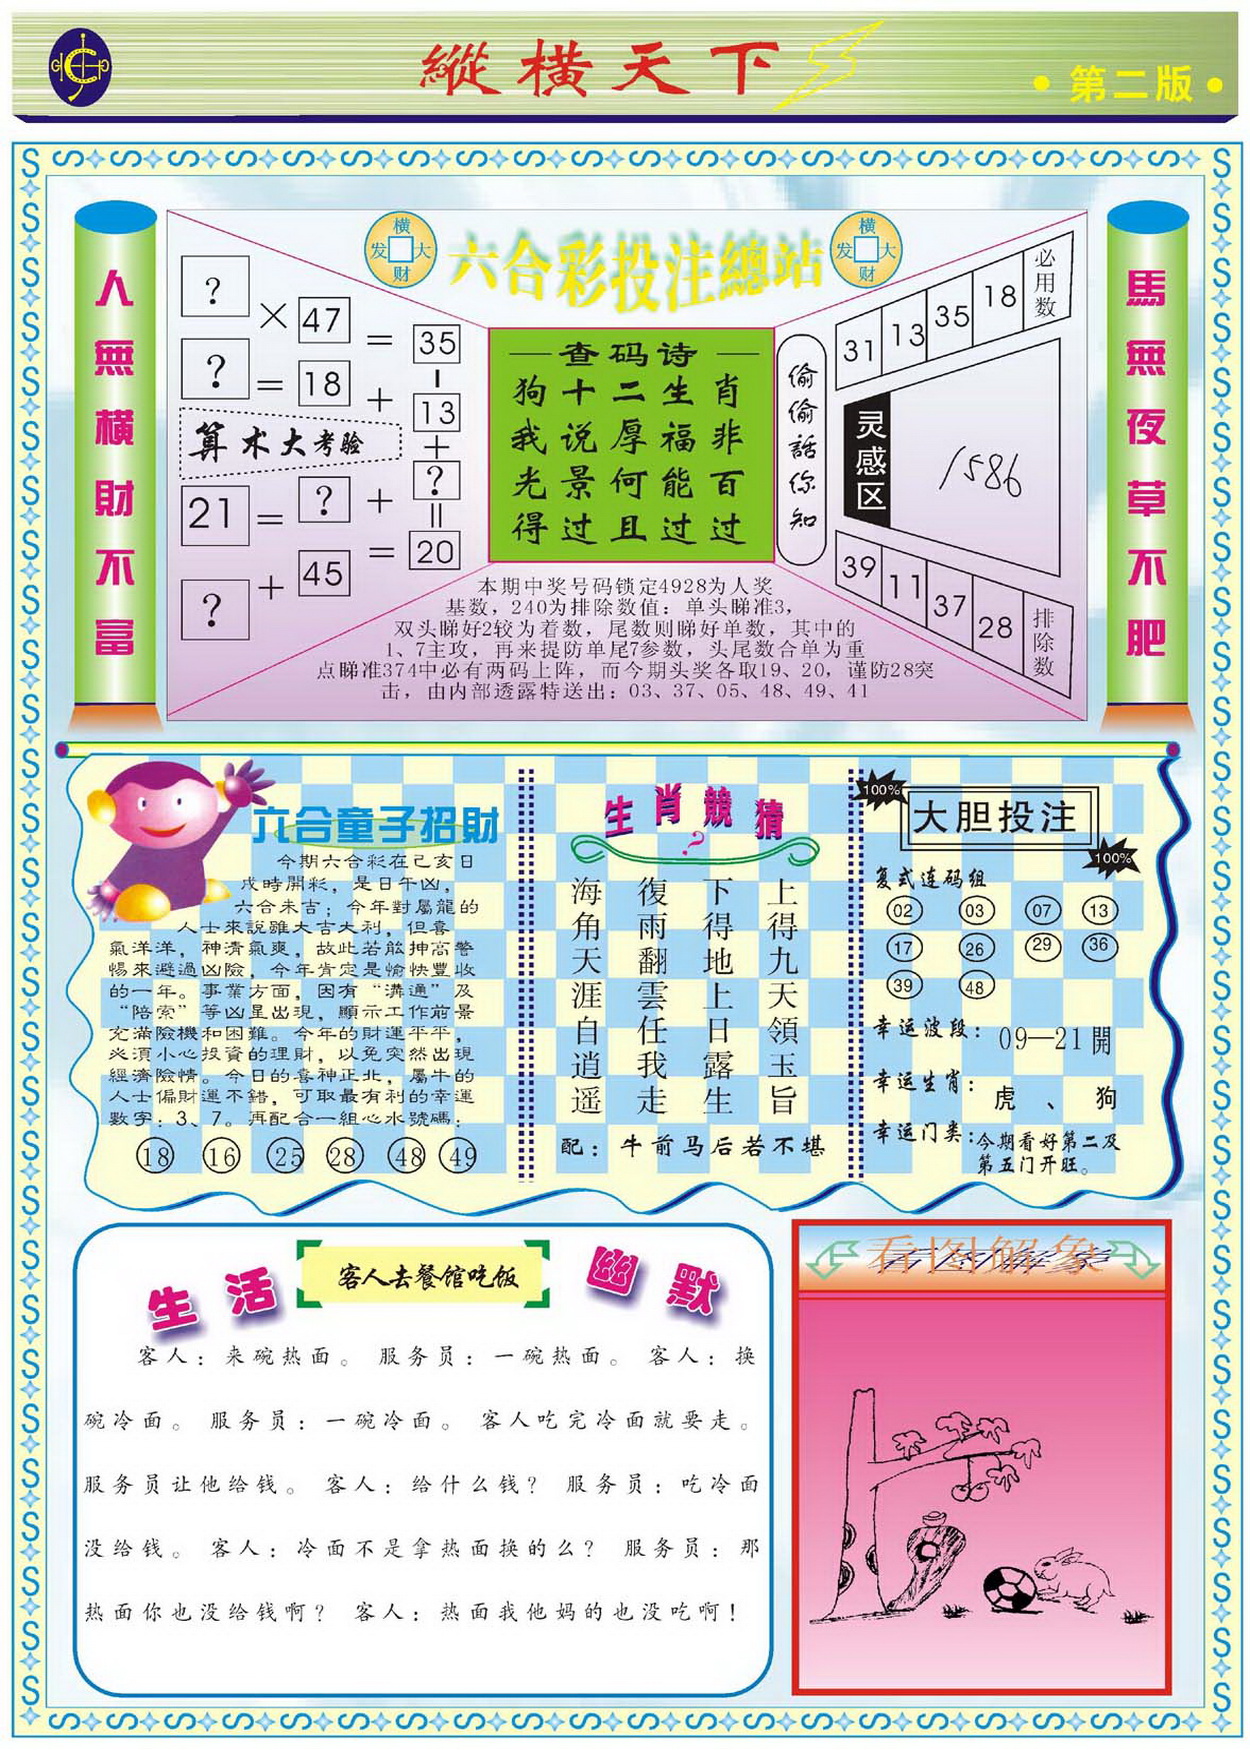 縱橫天下
·第二版·
人無橫財不富
馬無夜草不肥
橫
发 大
财
六合彩投注總站
橫
发 大
财
? × 47 = 35
? = 18 + 13
算术大考验
21 = ? + ?
? + 45 = 20
一查码诗一
狗十二生肖
我说厚福非
光景何能百
得过且过过
偷偷話你知
31 13 35 18 必用数
灵感区
1586
39 11 37 28 排除数
本期中奖号码锁定4928为人奖
基数，240为排除数值：单头睇准3，
双头睇好2较为着数，尾数则睇好单数，其中的
1、7主攻，再来提防单尾7参数，头尾数合单为重
点睇准374中必有两码上阵，而今期头奖各取19、20，谨防28突
击，由内部透露特送出：03、37、05、48、49、41
六合童子招財
今期六合彩在己亥日
戌時開彩，是日午凶，
六合未吉；今年對屬龍的
人士來說雖大吉大利，但喜
氣洋洋，神清氣爽，故此若能抻高警
惕來避過凶險，今年肯定是愉快豐收
的一年。事業方面，因有“溝通”及
“陪索”等凶星出現，顯示工作前景
充滿險機和困難。今年的財運平平，
必須小心投資的理財，以免突然出現
經濟險情。今日的喜神正北，屬牛的
人士偏財運不錯，可取最有利的幸運
數字：3、7。再配合一組心水號碼：
18 16 25 28 48 49
生肖競猜
?
上得九天領玉旨
下得地上日露生
復雨翻雲任我走
海角天涯自逍遥
配：牛前马后若不堪
100%
大胆投注
100%
复式连码组
02 03 07 13
17 26 29 36
39 48
幸运波段：09—21開
幸运生肖：虎、狗
幸运门类：今期看好第二及
第五门开旺。
生活
客人去餐馆吃饭
幽默
客人：来碗热面。 服务员：一碗热面。 客人：换
碗冷面。 服务员：一碗冷面。 客人吃完冷面就要走。
服务员让他给钱。 客人：给什么钱？ 服务员：吃冷面
没给钱。 客人：冷面不是拿热面换的么？ 服务员：那
热面你也没给钱啊？ 客人：热面我他妈的也没吃啊！
看图解象